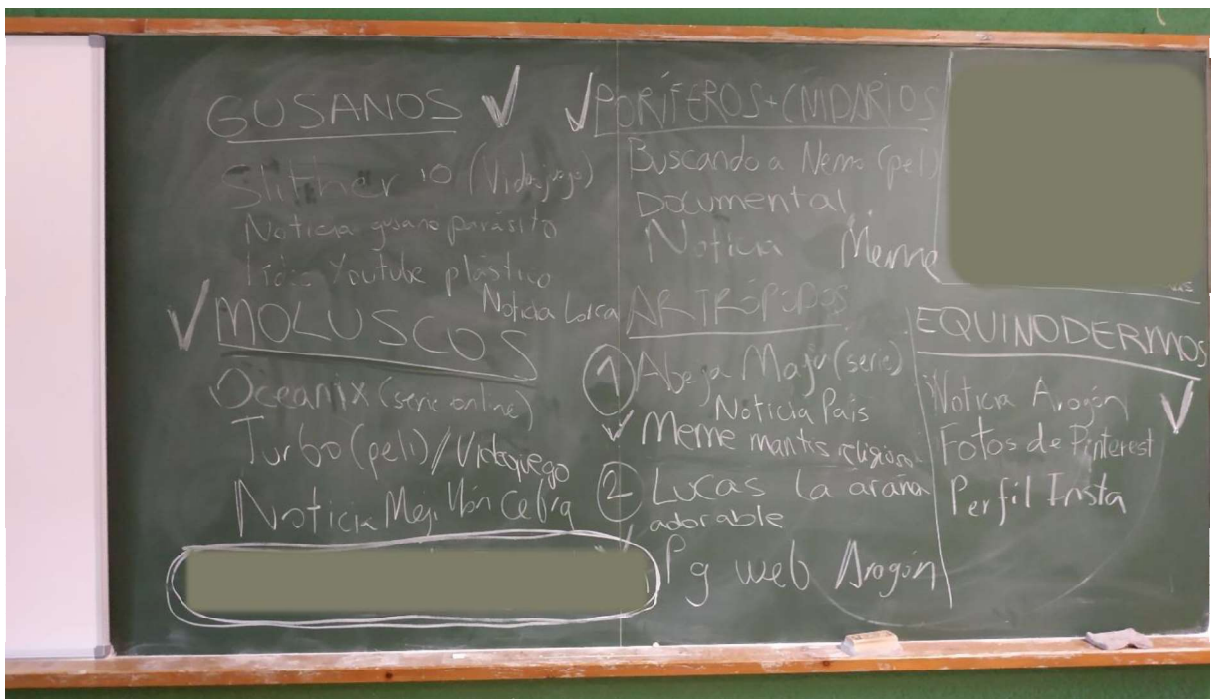 GUSANOS
Slither io (Videojuego)
Noticia gusano parásito
Youtube plástico
Noticia Lorca
MOLUSCOS
Oceanix (serie online)
Turbo (peli) / Videojuego
Noticia Mejillón Cebra
PORÍFEROS + CNIDARIOS
Buscando a Nemo (peli)
Documental
Noticia Meme
ARTRÓPODOS
1 Abeja Maya (serie)
Noticia País
Meme mantis religiosa
2 Lucas la araña
adorable
Pg web Aragón
EQUINODERMOS
Noticia Aragón
Fotos de Pinterest
Perfil Insta